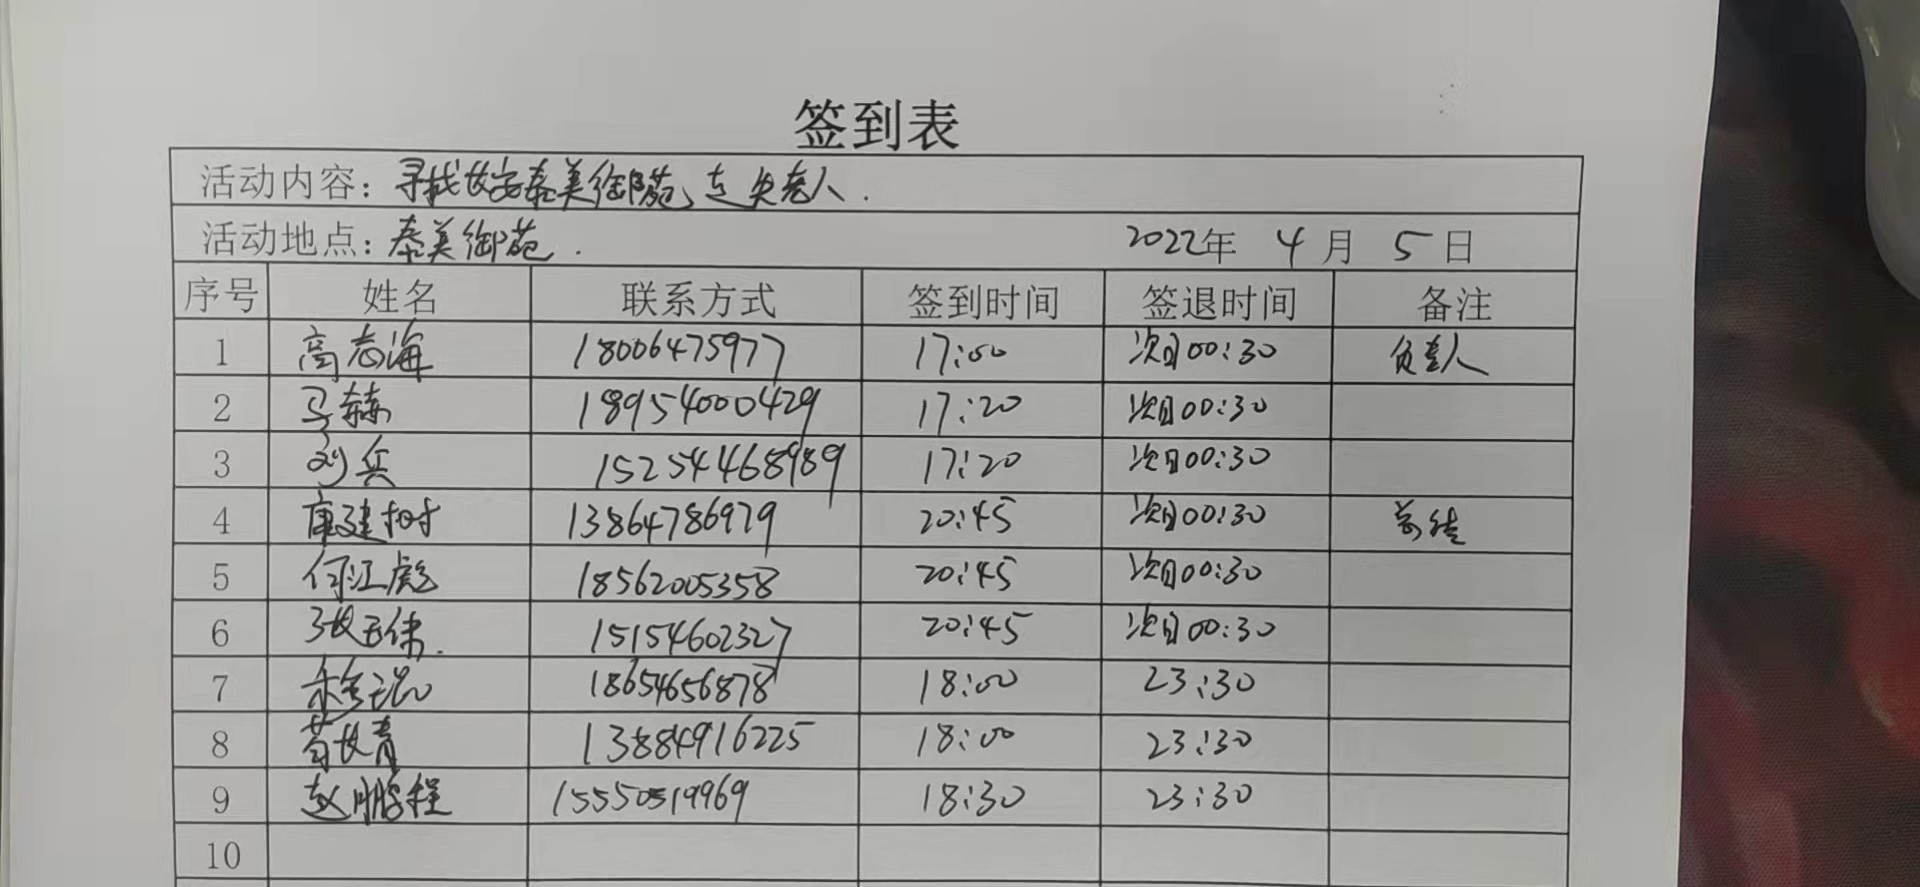 签到表
活动内容：寻找 泰美御苑走失老人.
活动地点：泰美御苑. 2022年 4月 5日
序号 姓名 联系方式 签到时间 签退时间 备注
1 高志海 18006475977 17:00 次日00:30 负责人
2 马赫 18954000429 17:20 次日00:30
3 刘兵 15254468989 17:20 次日00:30
4 康建树 13864786979 20:45 次日00:30
5 何江彪 18562005358 20:45 次日00:30
6 张玉伟. 15154602327 20:45 次日00:30
7 18654656878 18:00 23:30
8 苟长青 13884916225 18:00 23:30
9 赵鹏程 15550519969 18:30 23:30
10